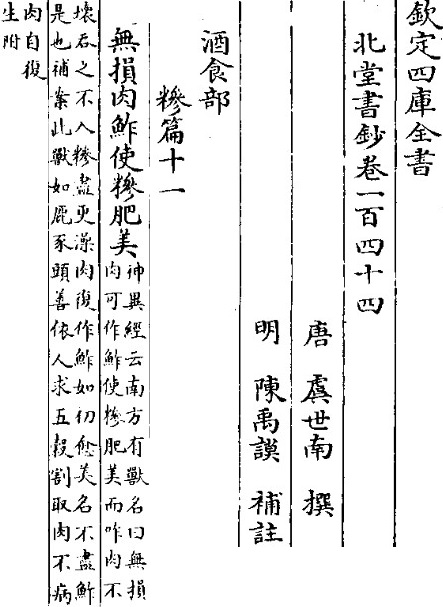 欽定四庫全書
北堂書鈔卷一百四十四
唐 虞世南 撰
明 陳禹謨 補註
酒食部
糝篇十一
無損肉鮓使糝肥美
神異經云南方有獸名曰無損
肉可作鮓使糝肥美而咋肉不
壞吞之不入糝盡更澡肉復作鮓如初愈美名不盡鮓
是也補案此獸如鹿豕頭善依人求五穀割取肉不病
肉自復
生附